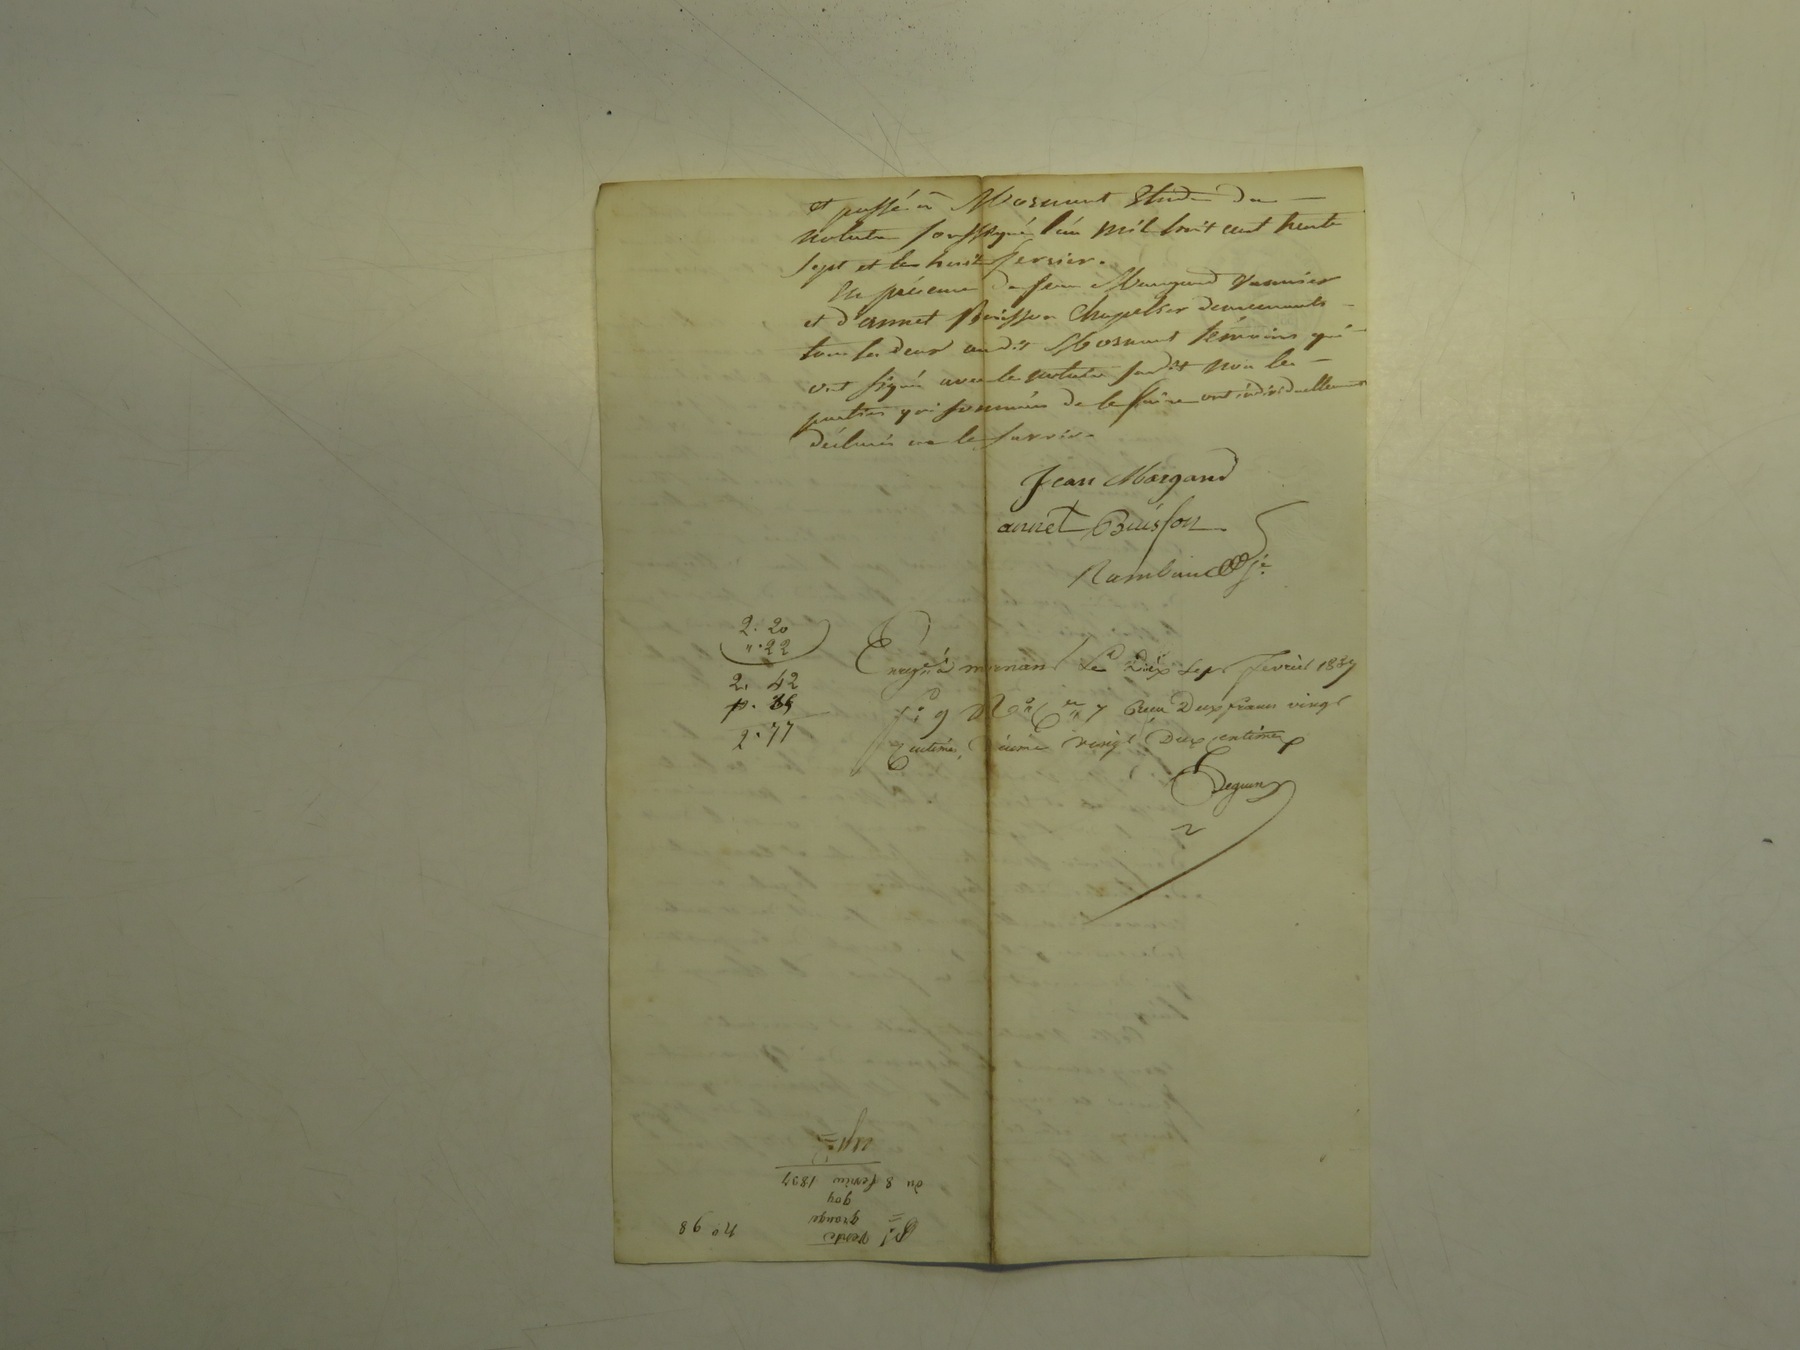 et passé à Mornant Etude du
notaire soussigné l'an mil huit cent trente
sept et le huit fevrier.
En présence de Jean Margand vannier
et d'annet Buisson Chapelier demeurants
tous les deux audit Mornant témoins qui
ont signé avec le notaire susdit non les
parties qui sommées de le faire ont individuellement
déclaré ne le savoir.
Jean Margand
annet Buisson
Rambaud Jne
2. 20
". 22
2. 42
2. 77
Enregré à mornant Le Dix Sept fevrier 1837
fo 9 Ro Cer 7 Reçu Deux francs vingt
Centimes, Décime vingt Deux centimes
Seguin
no 98
vente
grange
goy
du 8 fevrier 1837